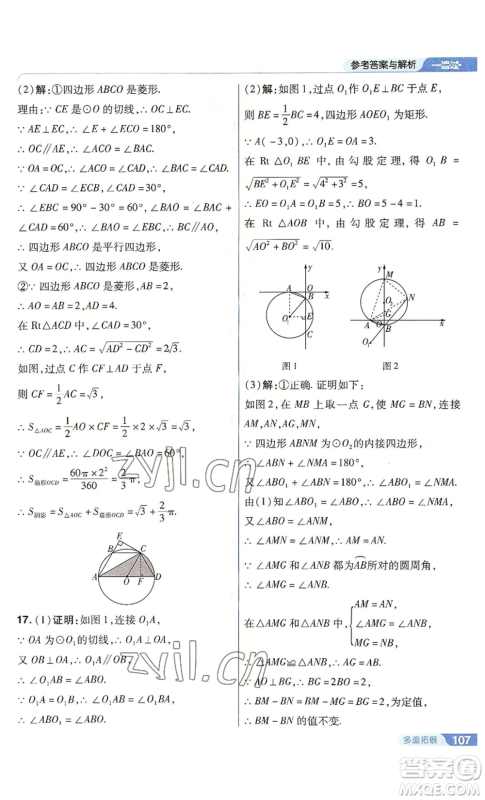 参考答案与解析 一遍过
(2)解:①四边形ABCO是菱形.
理由:∵CE是⊙O的切线,∴OC⊥EC.
∵AE⊥EC,∴∠AEC+∠OCE=180°,
∴OC∥AE,∴∠ACO=∠BAC.
∵OA=OC,∴∠ACO=∠CAO.
∵∠CAD=∠ECB,∠CAD=30°,
∴∠EBC=90°-30°=60°,∴∠BAO=∠BAC+∠CAD=60°,∴∠EBC=∠BAO,∴BC∥AO,
∴四边形ABCO是平行四边形.
又OA=OC,∴四边形ABCO是菱形.
②∵四边形ABCO是菱形,AB=2,
∴AO=AB=2,AD=4.
在Rt△ACD中,∠CAD=30°,
∴CD=2,AC=√(AD²-CD²)=2√3.
如图,过点C作CF⊥AD于点F,
则CF=1/2AC=√3,
∴S△AOC=1/2AO×CF=1/2×2×√3=√3.
∵OC∥AE,∴∠DOC=∠BAO=60°,
∴S扇形OCD=60π×2²/360=2/3π,
∴S阴影=S△AOC+S扇形OCD=√3+2/3π.
E
B
C
A
O
F
D
17.(1)证明:如图1,连接O₁A,
∵OA为⊙O₁的切线,∴OA⊥O₁A.
又OB⊥OA,∴O₁A∥OB,
∴∠O₁AB=∠ABO.
∵O₁A=O₁B,∴∠O₁AB=∠ABO₁,
∴∠ABO₁=∠ABO.
(2)解:如图1,过点O₁作O₁E⊥BC于点E,
则BE=1/2BC=4,四边形AOEO₁为矩形.
∵A(-3,0),∴O₁E=AO=3.
在Rt△O₁BE中,由勾股定理,得O₁B=√(BE²+O₁E²)=√(4²+3²)=5,
∴EO=O₁A=O₁B=5,∴BO=5-4=1.
在Rt△AOB中,由勾股定理,得AB=√(AO²+BO²)=√10.
y
A
O
x
B
O₁
E
C
图1
y
M
N
A
O
x
B
O₁
图2
(3)解:①正确.证明如下:
如图2,在MB上取一点G,使MG=BN,连接AM,AN,AG,MN.
∵四边形ABNM为⊙O₂的内接四边形,
∴∠ABN+∠NMA=180°.
∵∠ABO₁+∠ABN=180°,∴∠ABO₁=∠NMA.
由(1)知∠ABO₁=∠ABO,∴∠ABO=∠NMA.
又∠ABO=∠ANM,
∴∠AMN=∠ANM,∴AM=AN.
∵∠AMG和∠ANB都为AB所对的圆周角,
∴∠AMG=∠ANB.
在△AMG和△ANB中,
AM=AN,
∠AMG=∠ANB,
MG=BN,
∴△AMG≌△ANB,∴AG=AB.
∵AO⊥BG,∴BG=2BO=2,
∴BM-BN=BM-MG=BG=2,为定值,
∴BM-BN的值不变.
zyjl.cn
zyjl.cn
多重拓展 107
答案圈
MXQE.COM